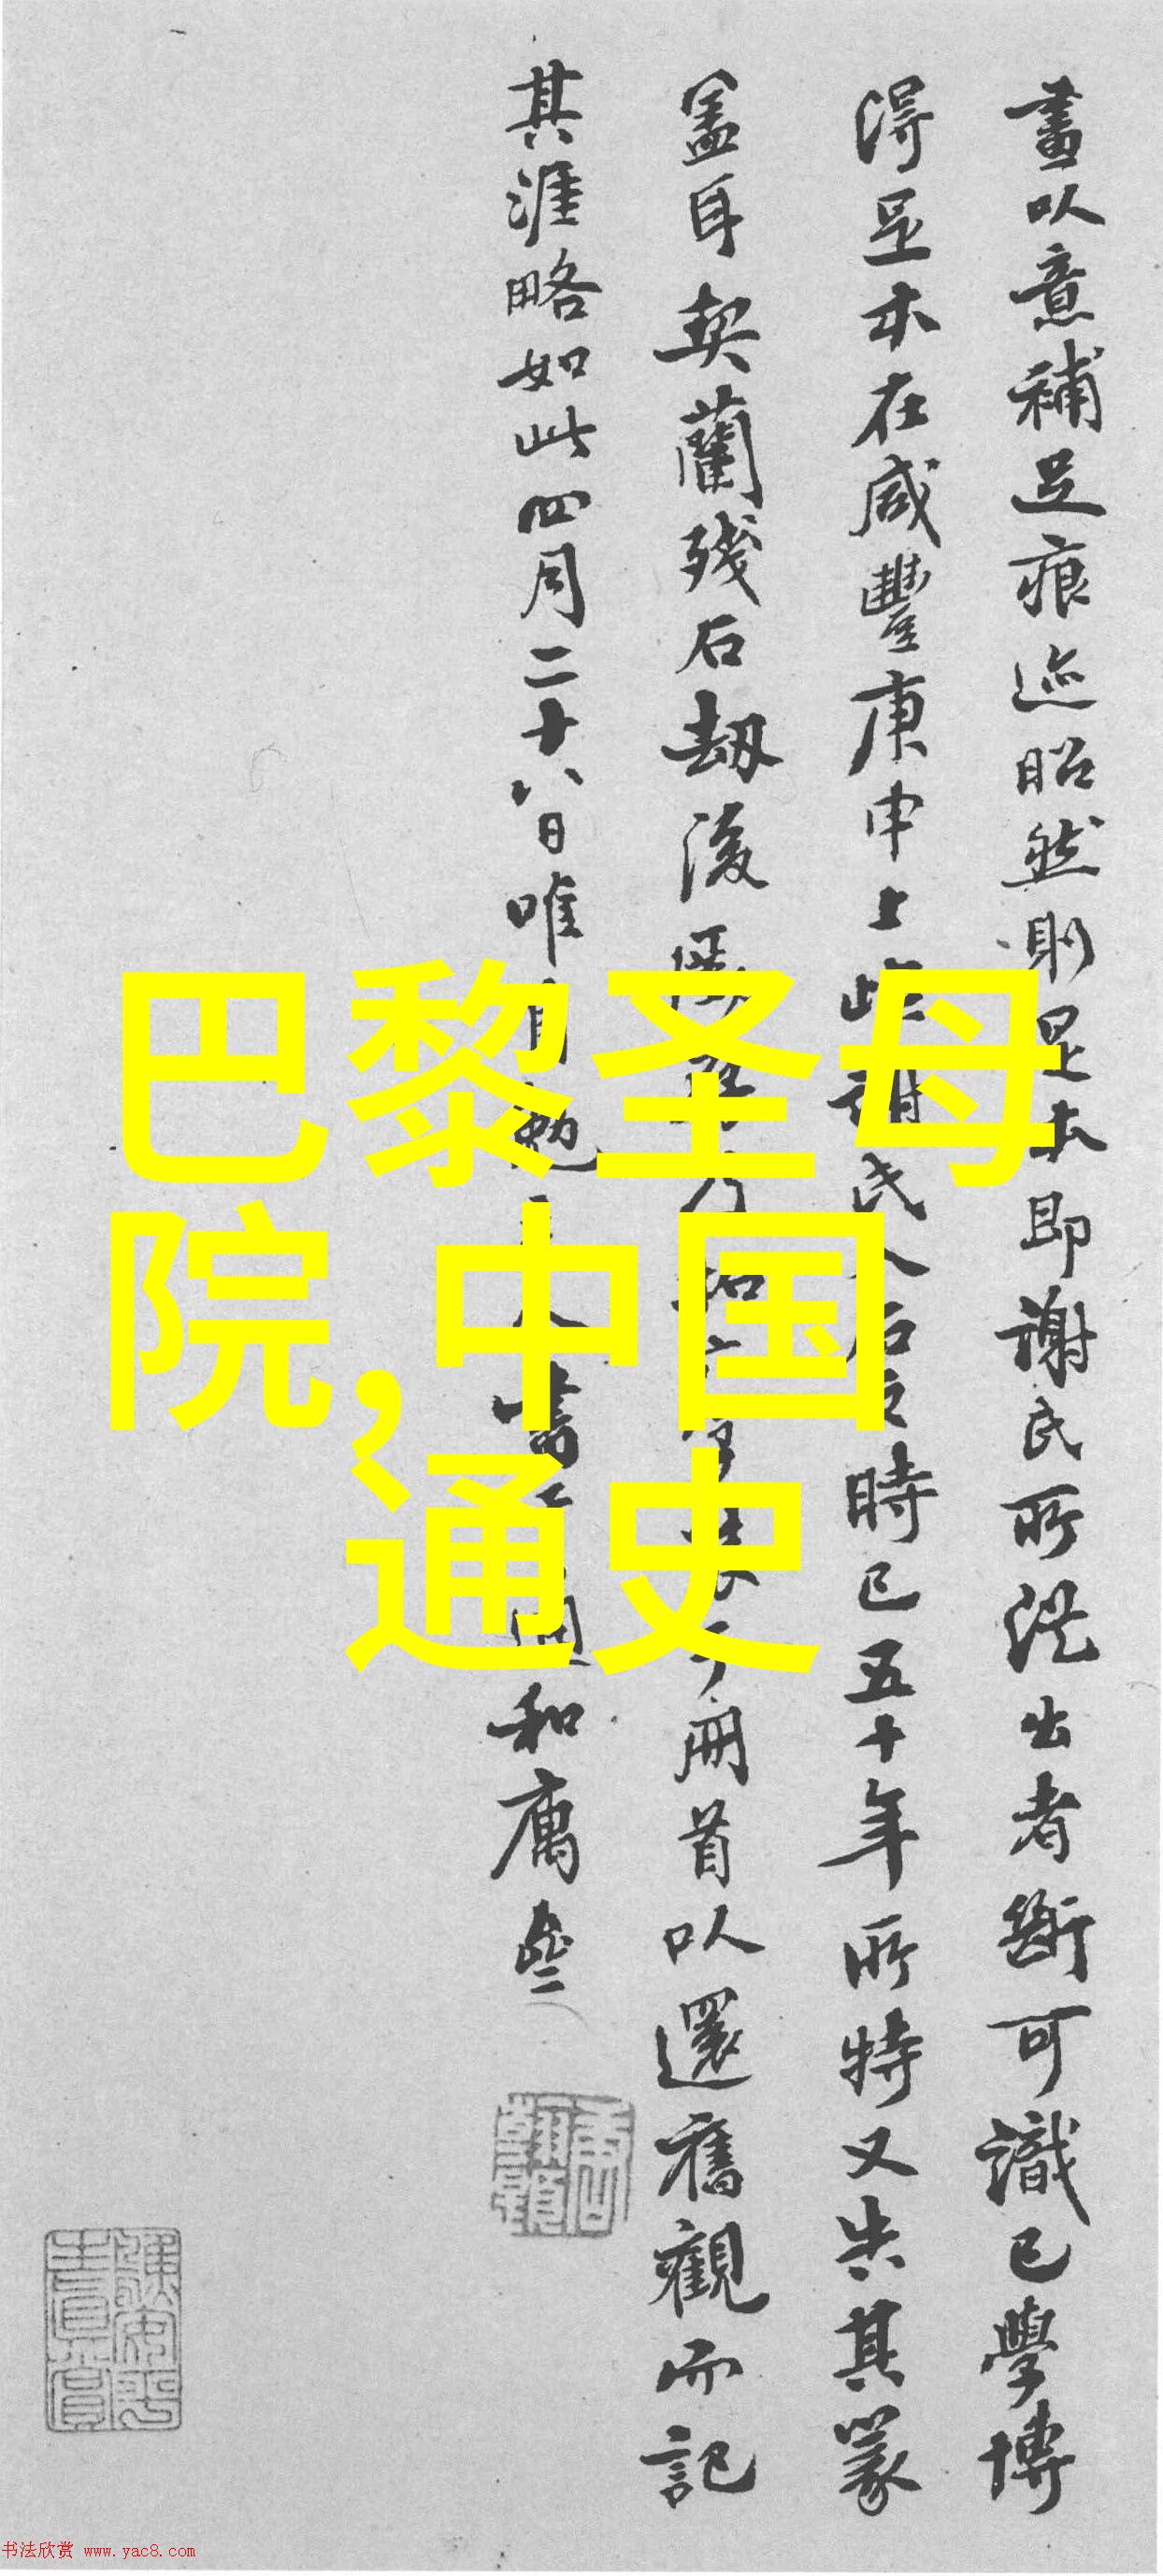 畫以意補足痕迹昭然則是本即謝氏所洗出者斷可識已學博
得足本在咸豐庚申上距謝氏入石之時已五十年所特又失其篆
蓋耳契蘭残石劫後
册首以還舊觀而記
其涯略如此四月二十八日唯
書
和庵
巴黎圣母
院,中国
通史
书法欣赏 www.yac8.com